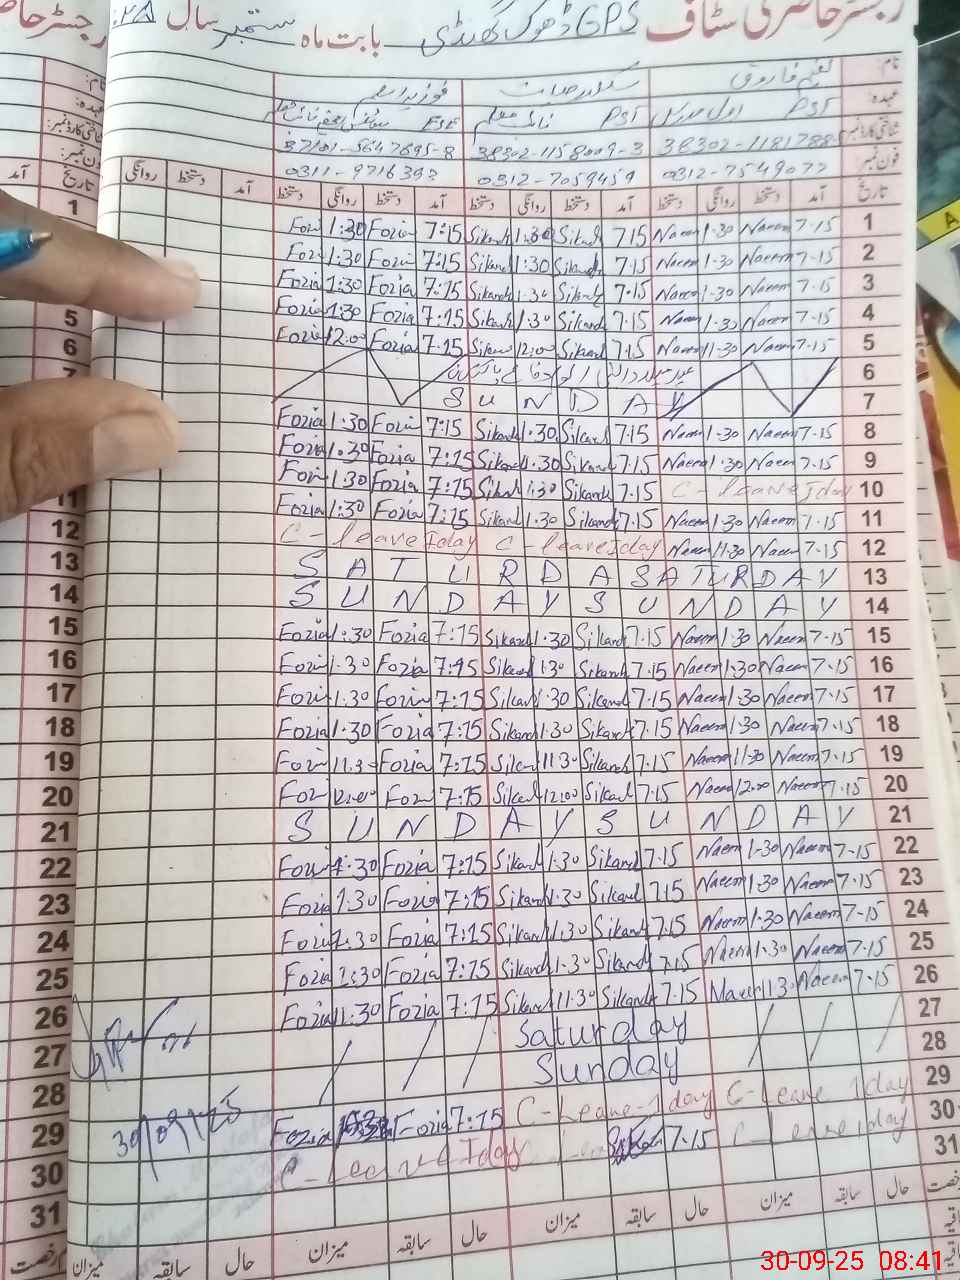 رجسٹر حاضری سٹاف GPS ڈھوک بابت ماہ ستمبر سال ۲۵ء
نام: نعیم فاروق سکندر حیات فوزیہ اسلم
عہدہ: PST PST نائب معلم ESE
شناختی کارڈ نمبر: 38302-1181788 38302-1158009-3 37101-5647695-8
فون نمبر: 0312-7549077 0312-7059459 0311-9716392
تاریخ آمد دستخط روانگی دستخط آمد دستخط روانگی دستخط آمد دستخط روانگی دستخط آمد دستخط روانگی
1 Fozi 1:30 Fozia 7:15 Sikand 1:30 Sikand 7.15 Naeem 1-30 Naeem 7-15 1
Fozi 1:30 Fozia 7:15 Sikand 1:30 Sikand 7.15 Naeem 1-30 Naeem 7-15 2
Fozia 1:30 Fozia 7:15 Sikand 1.30 Sikand 7.15 Naeem 1-30 Naeem 7-15 3
Fozia 1:30 Fozia 7:15 Sikand 1:30 Sikand 7.15 Naeem 1-30 Naeem 7-15 4
5 Fozia 12.00 Fozia 7:15 Sikan 12:00 Sikand 7.15 Naeem 11-30 Naeem 7-15 5
6 عید میلاد النبی 6
7 S U N D A Y 7
Fozia 1:30 Fozia 7:15 Sikand 1.30 Sikand 7.15 Naeem 1-30 Naeem 7-15 8
Fozia 1:30 Fozia 7:15 Sikand 1.30 Sikand 7.15 Naeem 1-30 Naeem 7-15 9
Fozia 1:30 Fozia 7:15 Sikand 1:30 Sikand 7.15 C-leave 1day 10
11 Fozia 1:30 Fozia 7:15 Sikand 1:30 Sikand 7.15 Naeem 1-30 Naeem 7-15 11
12 C-leave 1day C-leave 1day Naeem 11-30 Naeem 7-15 12
13 S A T U R D A S A T U R D A Y 13
14 S U N D A Y S U N D A Y 14
15 Fozia 1:30 Fozia 7:15 Sikand 1.30 Sikand 7.15 Naeem 1-30 Naeem 7-15 15
16 Fozia 1:30 Fozia 7:15 Sikand 1:30 Sikand 7.15 Naeem 1-30 Naeem 7-15 16
17 Fozia 1:30 Fozia 7:15 Sikand 1:30 Sikand 7.15 Naeem 1-30 Naeem 7-15 17
18 Fozia 1:30 Fozia 7:15 Sikand 1:30 Sikand 7.15 Naeem 1-30 Naeem 7-15 18
19 Fozia 11.30 Fozia 7:15 Sikand 11.30 Sikand 7.15 Naeem 11-30 Naeem 7-15 19
20 Fozi 12:00 Fozi 7:15 Sikand 12:00 Sikand 7.15 Naeem 12-00 Naeem 7-15 20
21 S U N D A Y S U N D A Y 21
22 Fozia 1:30 Fozia 7:15 Sikand 1:30 Sikand 7.15 Naeem 1-30 Naeem 7-15 22
23 Fozia 1:30 Fozia 7:15 Sikand 1:30 Sikand 7.15 Naeem 1-30 Naeem 7-15 23
24 Fozia 1:30 Fozia 7:15 Sikand 1:30 Sikand 7.15 Naeem 1-30 Naeem 7-15 24
25 Fozia 1:30 Fozia 7:15 Sikand 1:30 Sikand 7.15 Naeem 1-30 Naeem 7-15 25
26 Fozia 11:30 Fozia 7:15 Sikand 11:30 Sikand 7.15 Naeem 11-30 Naeem 7-15 26
27 Saturday 27
28 Sunday 28
29 Fozia Fozia 7:15 C-Leave-1day C-Leave 1day 29
30 C-Leave 1day 7.15 C-Leave 1day 30
30/09/25
31 31
رخصت حال سابقہ میزان حال سابقہ میزان حال سابقہ میزان حال سابقہ میزان
30-09-25 08:41